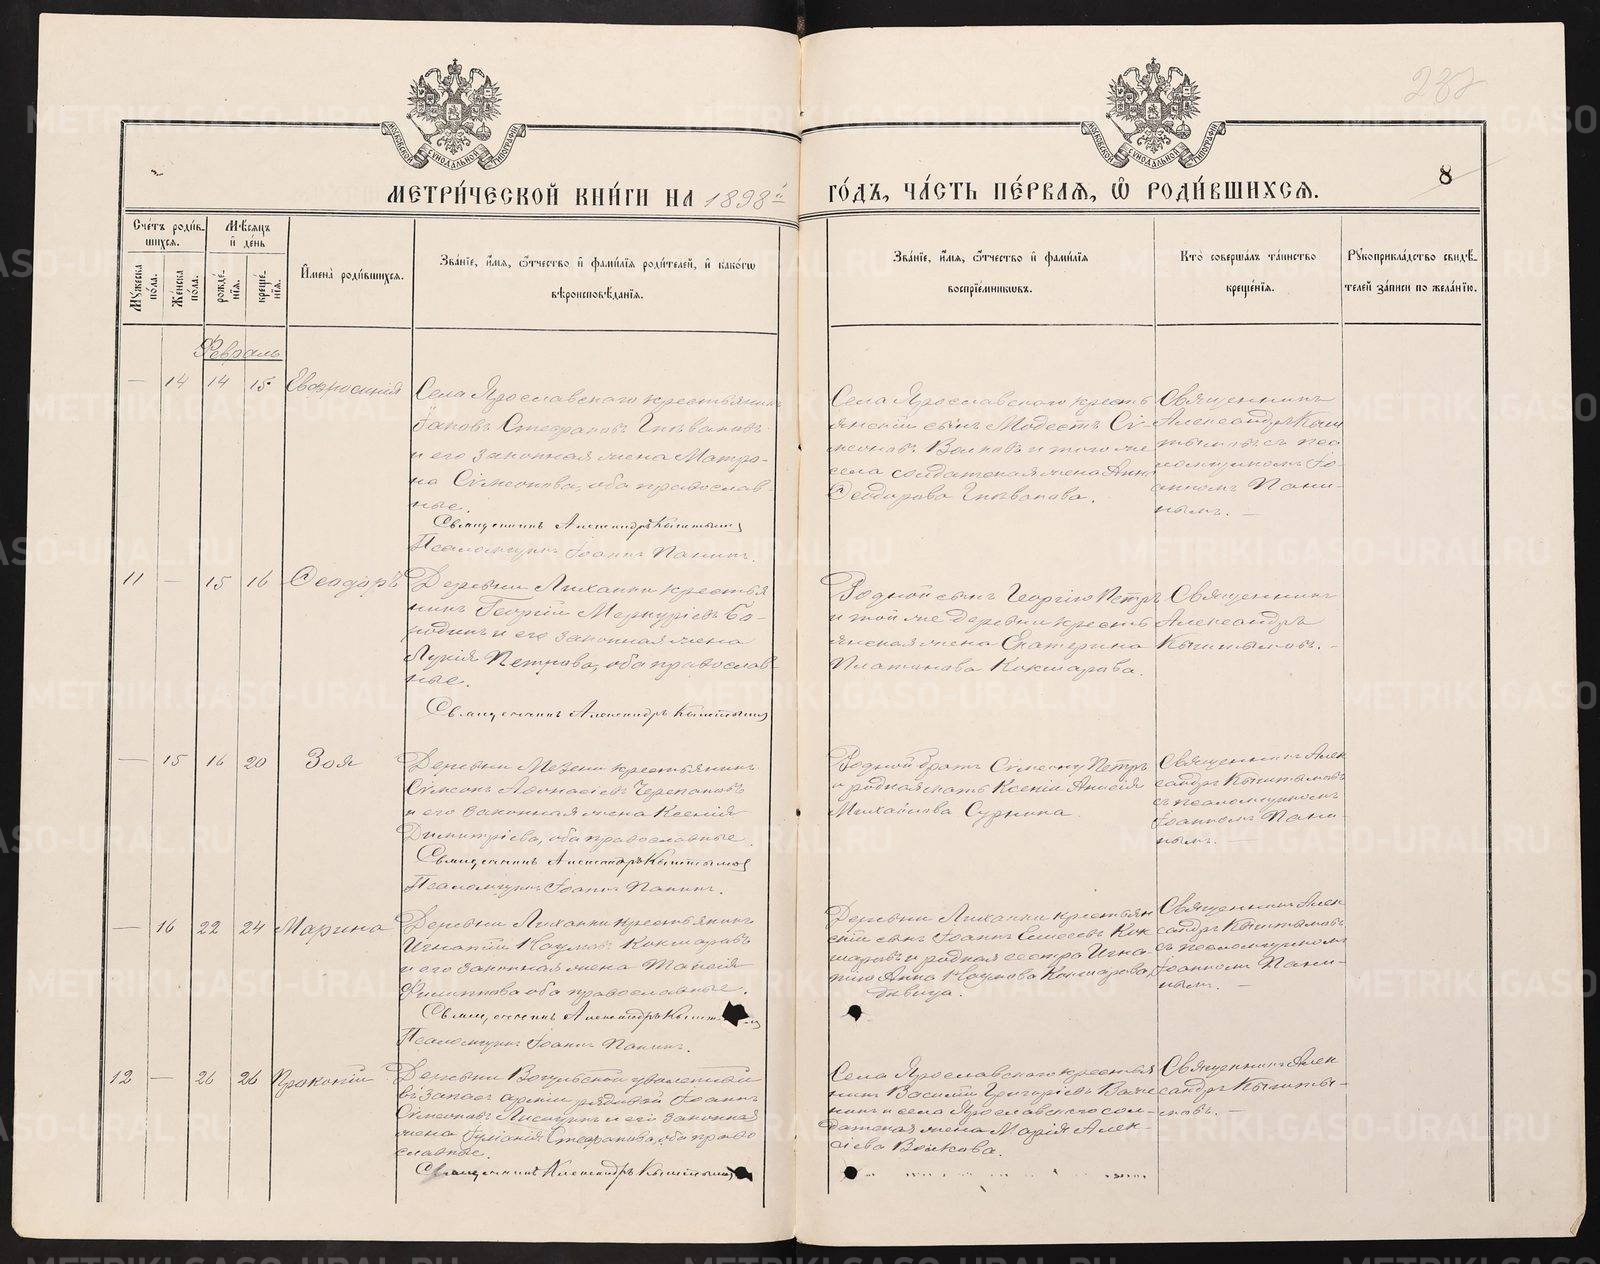 МЕТРИ́ЧЕСКОЙ КНИ́ГИ НА 1898й ГО́ДЪ, ЧА́СТЬ ПЕ́РВАѦ, Ѡ҆ РОДИ́ВШИХСѦ.
8
Сче́тъ роди́в-
шихсѧ.
Мѣ́сѧцъ
и҆ де́нь
Мꙋ́жеска
по́ла.
Же́нска
по́ла.
рожде́-
нїѧ.
креще́-
нїѧ.
И҆мена̀ роди́вшихсѧ.
Зва́нїе, и҆́мѧ, ѻ҆́тчество и҆ фами́лїѧ роди́телей, и҆ како́гѡ
вѣроисповѣ́данїѧ.
Зва́нїе, и҆́мѧ, ѻ҆́тчество и҆ фами́лїѧ
воспрїе́мникѡвъ.
Кто̀ соверша́лъ та́инство
креще́нїѧ.
Рꙋкоприкла́дство свидѣ́-
телей за́писи по жела́нїю.
Февраль
— 14 14 15 Евфросинія
Села Ярославскаго крестьянинъ
Іаковъ Стефановъ
и его законная жена Матро-
на Сѷмеонова, оба православ-
ные.
Священникъ Александръ Кыштымовъ
Псаломщикъ Іоаннъ Панинъ.
Села Ярославскаго кресть
янскій сынъ Модестъ Сѷ-
меоновъ Волковъ и того же
села солдатская жена Анна
Ѳеодорова
Священникъ
Александръ Кыш
тымовъ съ пса
ломщикомъ Іо-
анномъ Пани-
нымъ. —
11 — 15 16 Ѳеодоръ
Деревни Луханки крестья
нинъ Георгій Меркуріевъ Бо-
родинъ и его законная жена
Лукія Петрова, оба православ
ные.
Священникъ Александръ Кыштымовъ
Родной сынъ Георгію Петръ
и той же деревни кресть
янская жена Екатерина
Платонова Кокшарова.
Священникъ
Александръ
Кыштымовъ. —
— 15 16 20 Зоя
Деревни Мезени крестьянинъ
Сѷмеонъ Аѳонасіевъ Черепановъ
и его законная жена Ксенія
Димитріева, оба православные.
Священникъ Александръ Кыштымовъ
Псаломщикъ Іоаннъ Панинъ.
Родной братъ Сѷмеону Петръ
и родная мать Ксеніи Анисія
Михайлова Сурнина.
Священникъ Алек
сандръ Кыштымовъ
съ псаломщикомъ
Іоанномъ Пани-
нымъ. —
— 16 22 24 Марина
Деревни Луханки крестьянинъ
Игнатій Наумовъ Кокшаровъ
и его законная жена Таисія
Филиппова оба православные.
Священникъ Александръ Кыштымовъ
Псаломщикъ Іоаннъ Панинъ.
Деревни Луханки крестьян
скій сынъ Іоаннъ Елисеевъ Кок
шаровъ и родная сестра Игна-
тію Анна Наумова Кокшарова,
дѣвица.
Священникъ Алек
сандръ Кыштымовъ
съ псаломщикомъ
Іоанномъ Пани-
нымъ. —
12 — 26 26 Прокопій
Деревни Вогульской уволенный
въ запасъ арміи рядовой Іоаннъ
Сѷмеоновъ Лисицинъ и его законная
жена Іуліанія Стефанова, оба право
славные.
Священникъ Александръ Кыштымовъ
Села Ярославскаго крестья
нинъ Василій Григорьевъ
и села Ярославскаго сол-
датская жена Марія Алек-
сіева Волкова.
Священникъ Алек
сандръ Кышты-
мовъ. —
METRIKI.GASO-URAL.RU